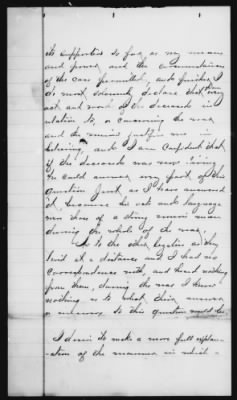 its supporters so far as my means
and power and the circumstances
of the case permitted, and further I
do most solemnly declare that every
act and word of the deceased in
relation to, or concerning the war
and the union justifies me in
believing, and I am confident that
if the deceased was now living
he could answer every part of this
question just as I have answered
it, because his acts and language
was those of a strong union man
during the whole of the war.
As to the other legatees as they
lived at a distance and I had no
correspondence with, and heard nothing
from them, during the war I know
nothing as to what their answer
or answers to this question would be.
I desire to make a more full explan-
-ation of the manner in which